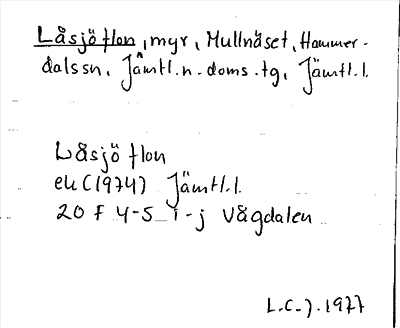 Låsjöflon, myr, Mullnäset, Hammer-
dalssn, Jämtl.n.doms.tg, Jämtl.l.
Låsjöflon
ek (1974) Jämtl.l.
20 F 4-5 i-j Vågdalen
L.C.J. 1977